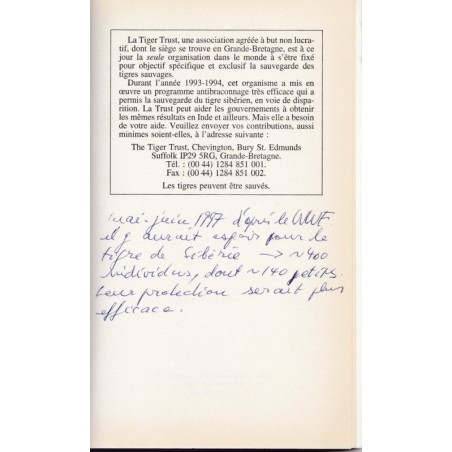 La Tiger Trust, une association agréée à but non lucra-
tif, dont le siège se trouve en Grande-Bretagne, est à ce
jour la seule organisation dans le monde à s'être fixé
pour objectif spécifique et exclusif la sauvegarde des
tigres sauvages.
Durant l'année 1993-1994, cet organisme a mis en
œuvre un programme antibraconnage très efficace qui a
permis la sauvegarde du tigre sibérien, en voie de dispa-
rition. La Trust peut aider les gouvernements à obtenir
les mêmes résultats en Inde et ailleurs. Mais elle a besoin
de votre aide. Veuillez envoyer vos contributions, aussi
minimes soient-elles, à l'adresse suivante :
The Tiger Trust, Chevington, Bury St. Edmunds
Suffolk IP29 5RG, Grande-Bretagne.
Tél. : (00 44) 1284 851 001.
Fax : (00 44) 1284 851 002.
Les tigres peuvent être sauvés.
mai-juin 1997 d'après le WWF
il y aurait espoir pour le
tigre de Sibérie → ~400
individus, dont ~140 petits.
Leur protection serait plus
efficace.